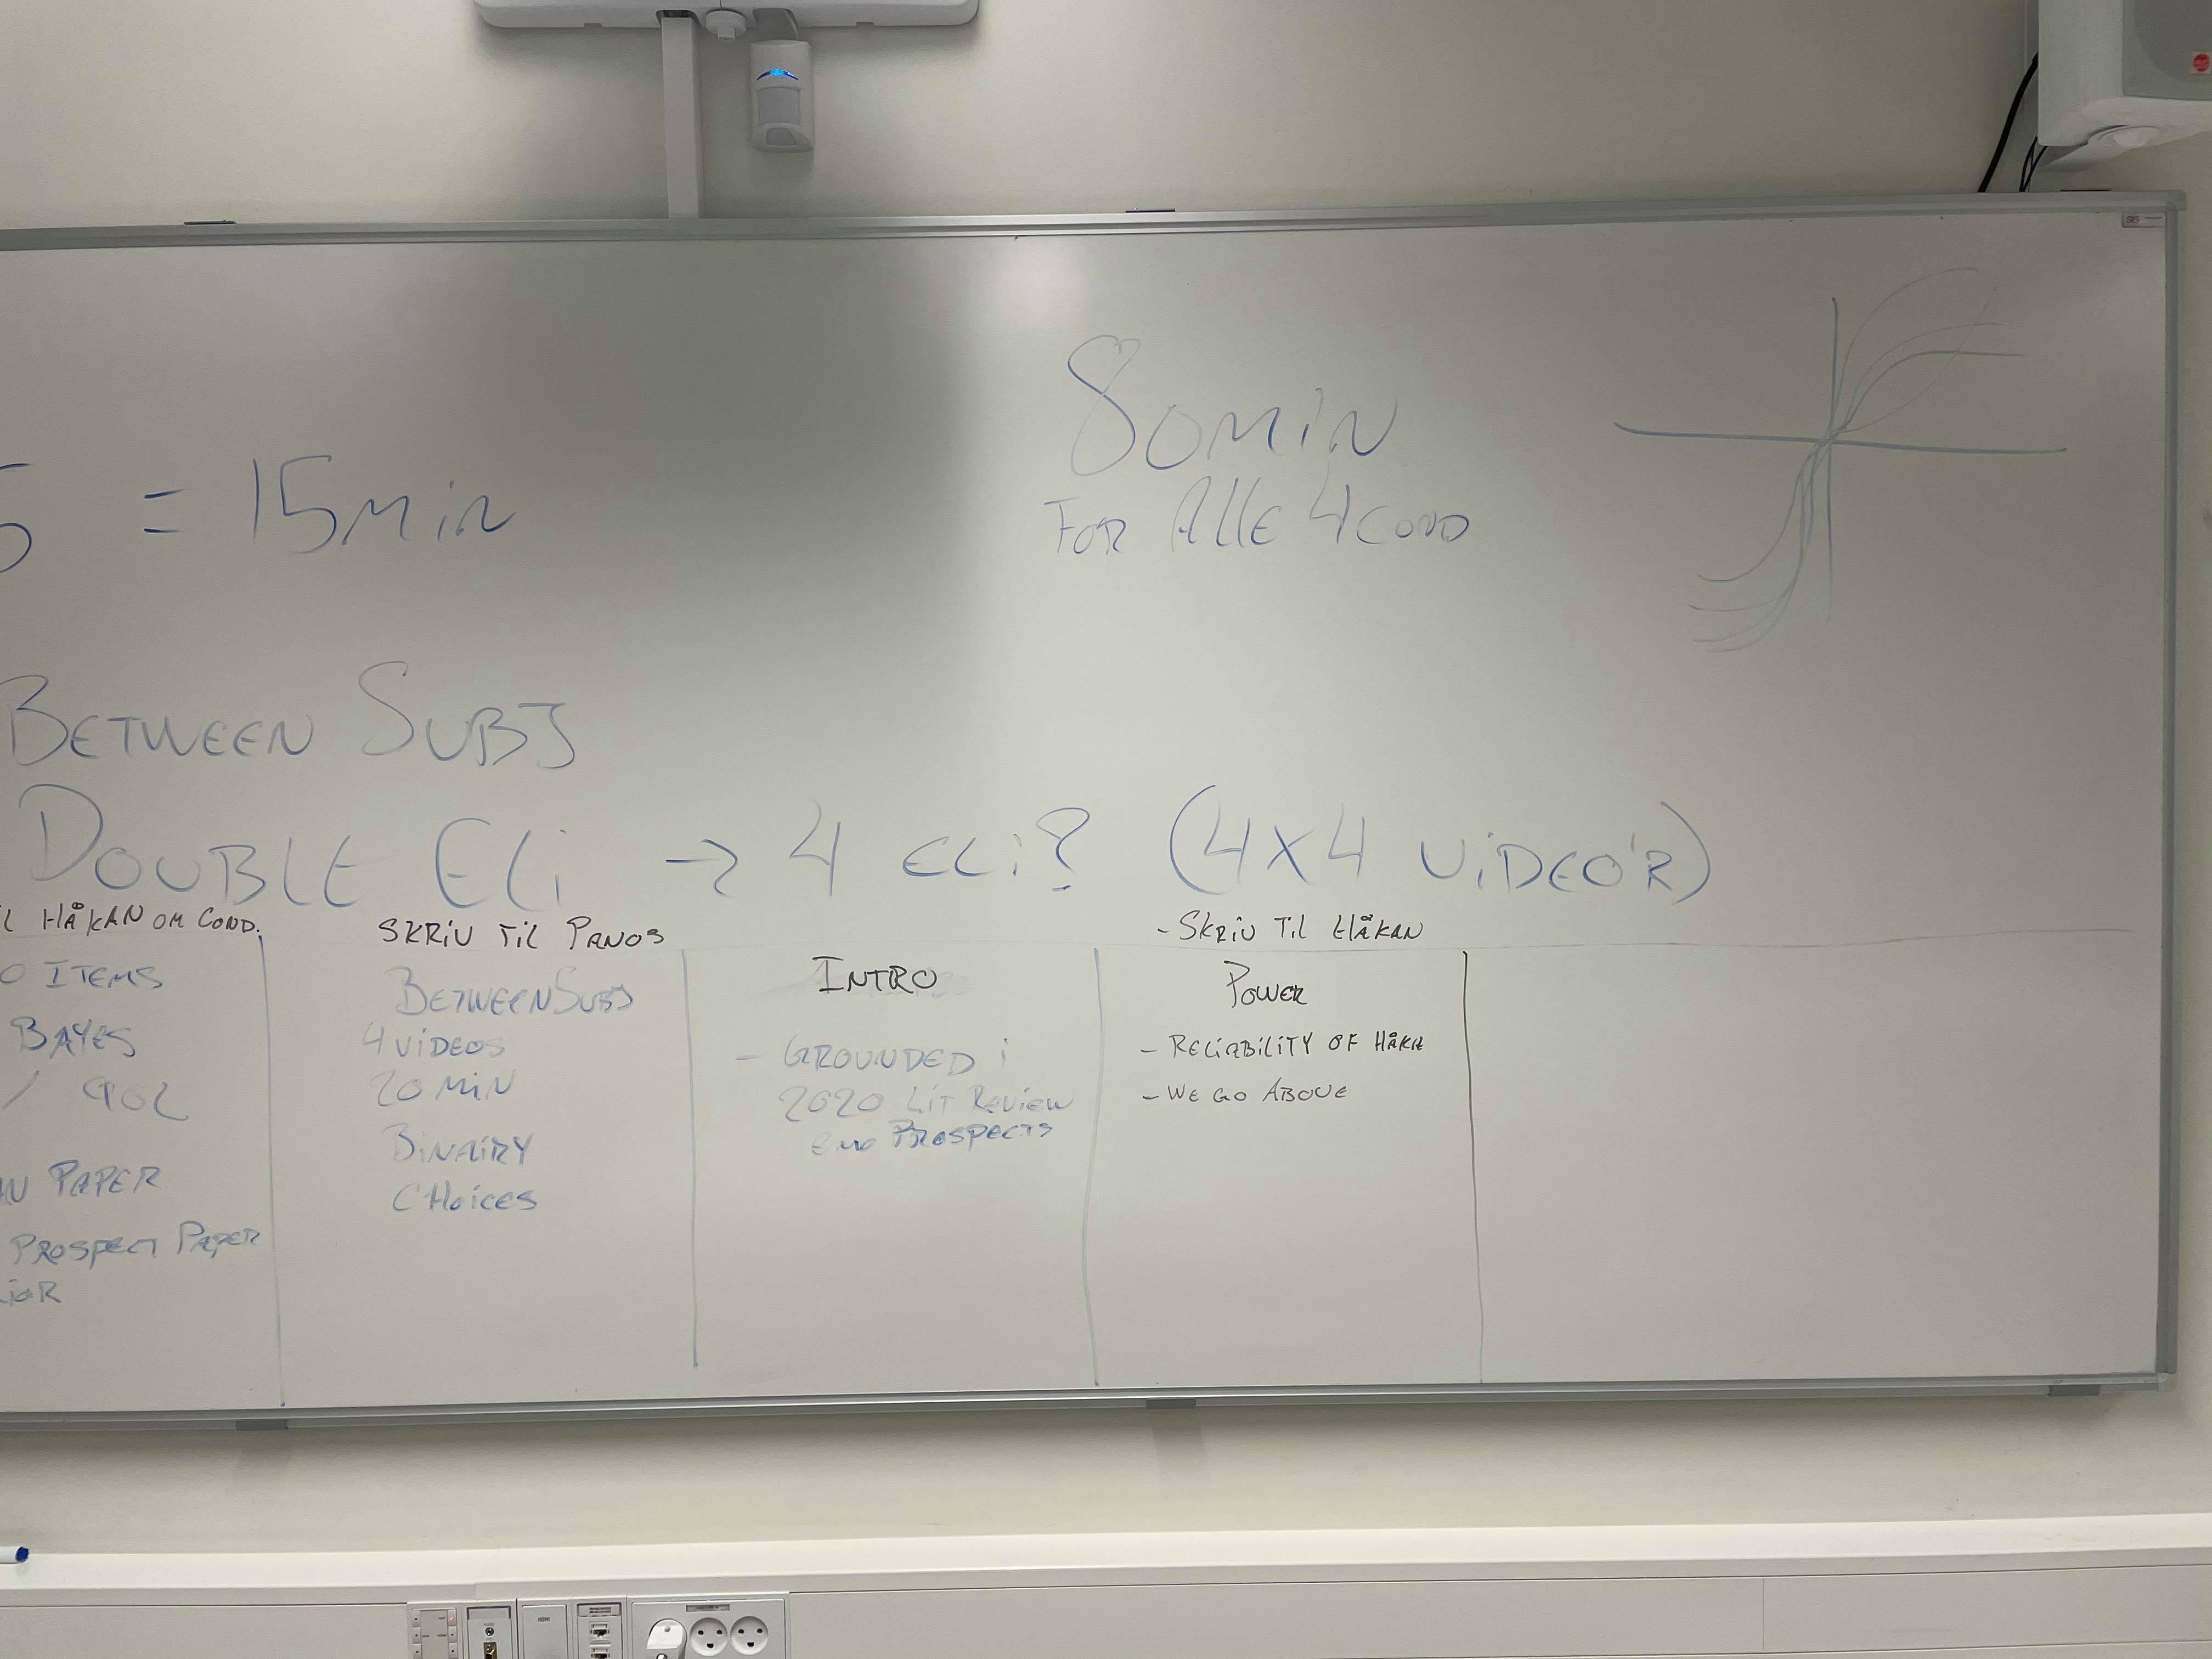 5 = 15 MIN
80 MIN
FOR ALLE 4 COND
BETWEEN SUBJ
DOUBLE ELI → 4 ELI? (4X4 VIDEO'R)
HÅKAN OM COND.
O ITEMS
BAYES
/
PAPER
PROSPECT PAPER
SKRIV TIL PANOS
BETWEEN SUBJ
4 VIDEOS
20 MIN
BINAIRY
CHOICES
INTRO
- GROUNDED i
2020 LIT REVIEW
EMO PROSPECTS
- SKRIV TIL HÅKAN
POWER
- RELIABILITY OF HÅKA
- WE GO ABOVE